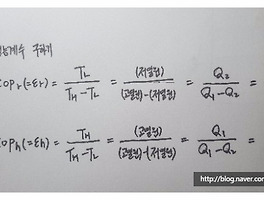 능계수 구하기
COPr(=εr) = TL / (TH - TL) = (저열원) / ((고열원)-(저열원)) = Q2 / (Q1 - Q2) =
COPh(=εh) = TH / (TH - TL) = (고열원) / ((고열원)-(저열원)) = Q1 / (Q1 - Q2) =
http://blog.naver.com/